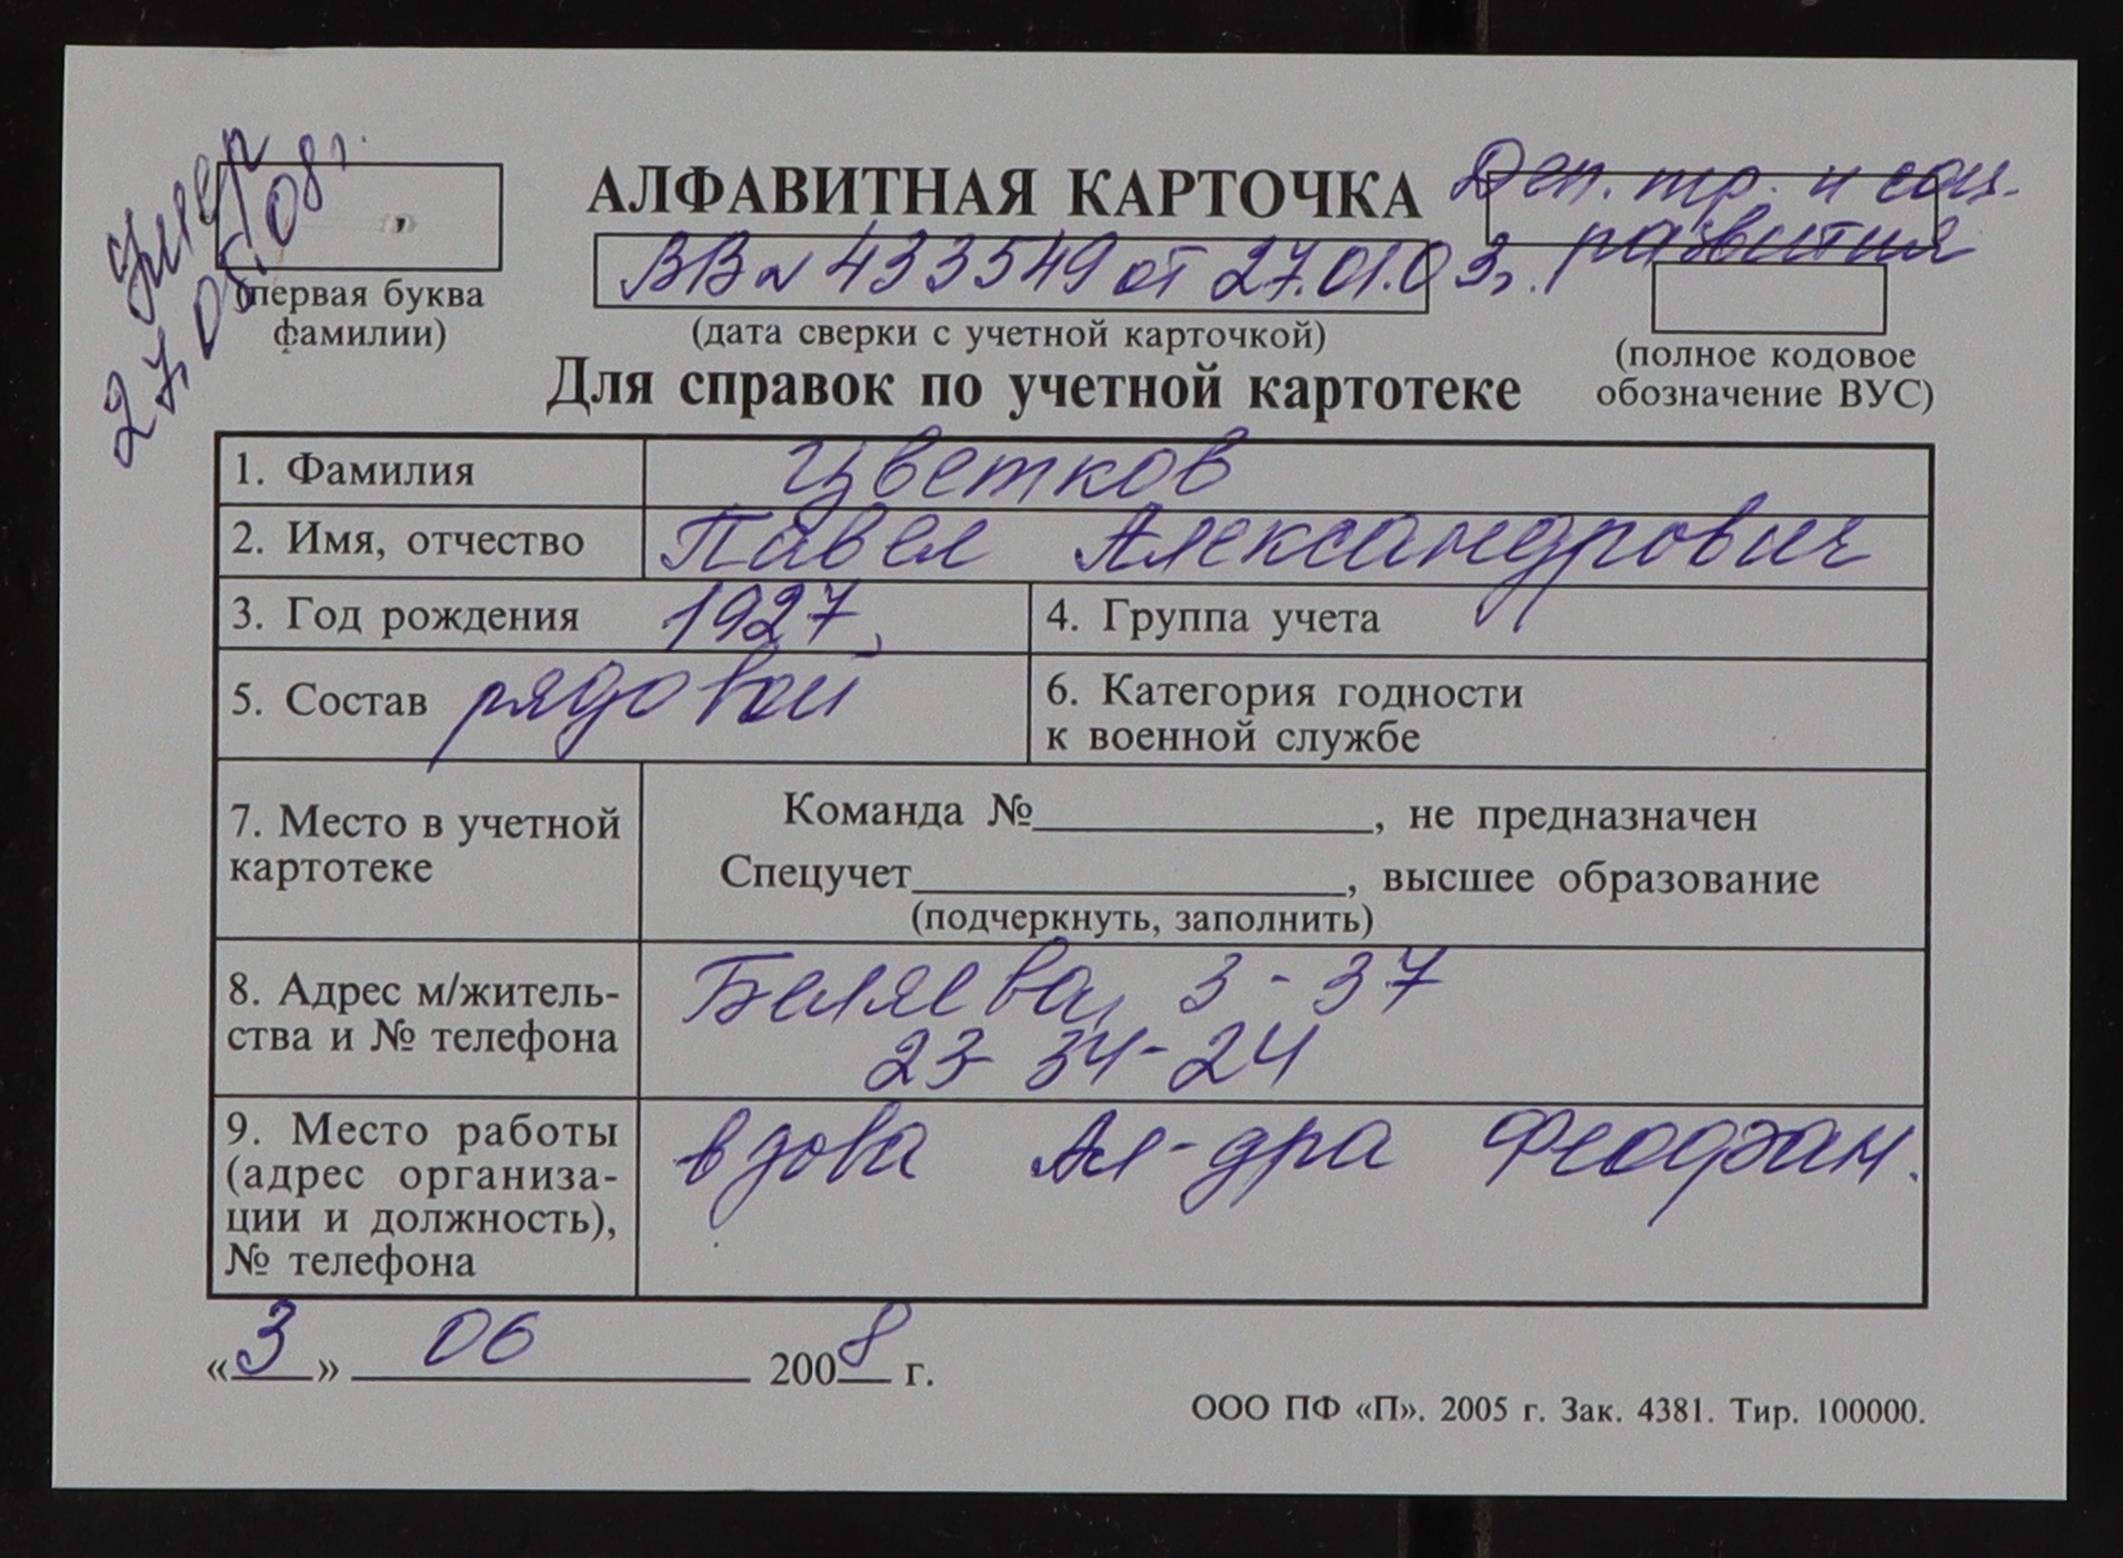 Умер
27.05.08г.
(первая буква
фамилии)
АЛФАВИТНАЯ КАРТОЧКА
ВВ № 433549 от 27.01.03г.
(дата сверки с учетной карточкой)
Деп. тр. и соц.
развития
(полное кодовое
обозначение ВУС)
Для справок по учетной картотеке
1. Фамилия Цветков
2. Имя, отчество Павел Александрович
3. Год рождения 1927
4. Группа учета
5. Состав рядовой
6. Категория годности
к военной службе
7. Место в учетной
картотеке
Команда №____________, не предназначен
Спецучет____________, высшее образование
(подчеркнуть, заполнить)
8. Адрес м/житель-
ства и № телефона
Беляева, 3-37
23-34-24
9. Место работы
(адрес организа-
ции и должность),
№ телефона
вдова Ал-дра Феофан.
«3» 06 2008 г.
ООО ПФ «П». 2005 г. Зак. 4381. Тир. 100000.